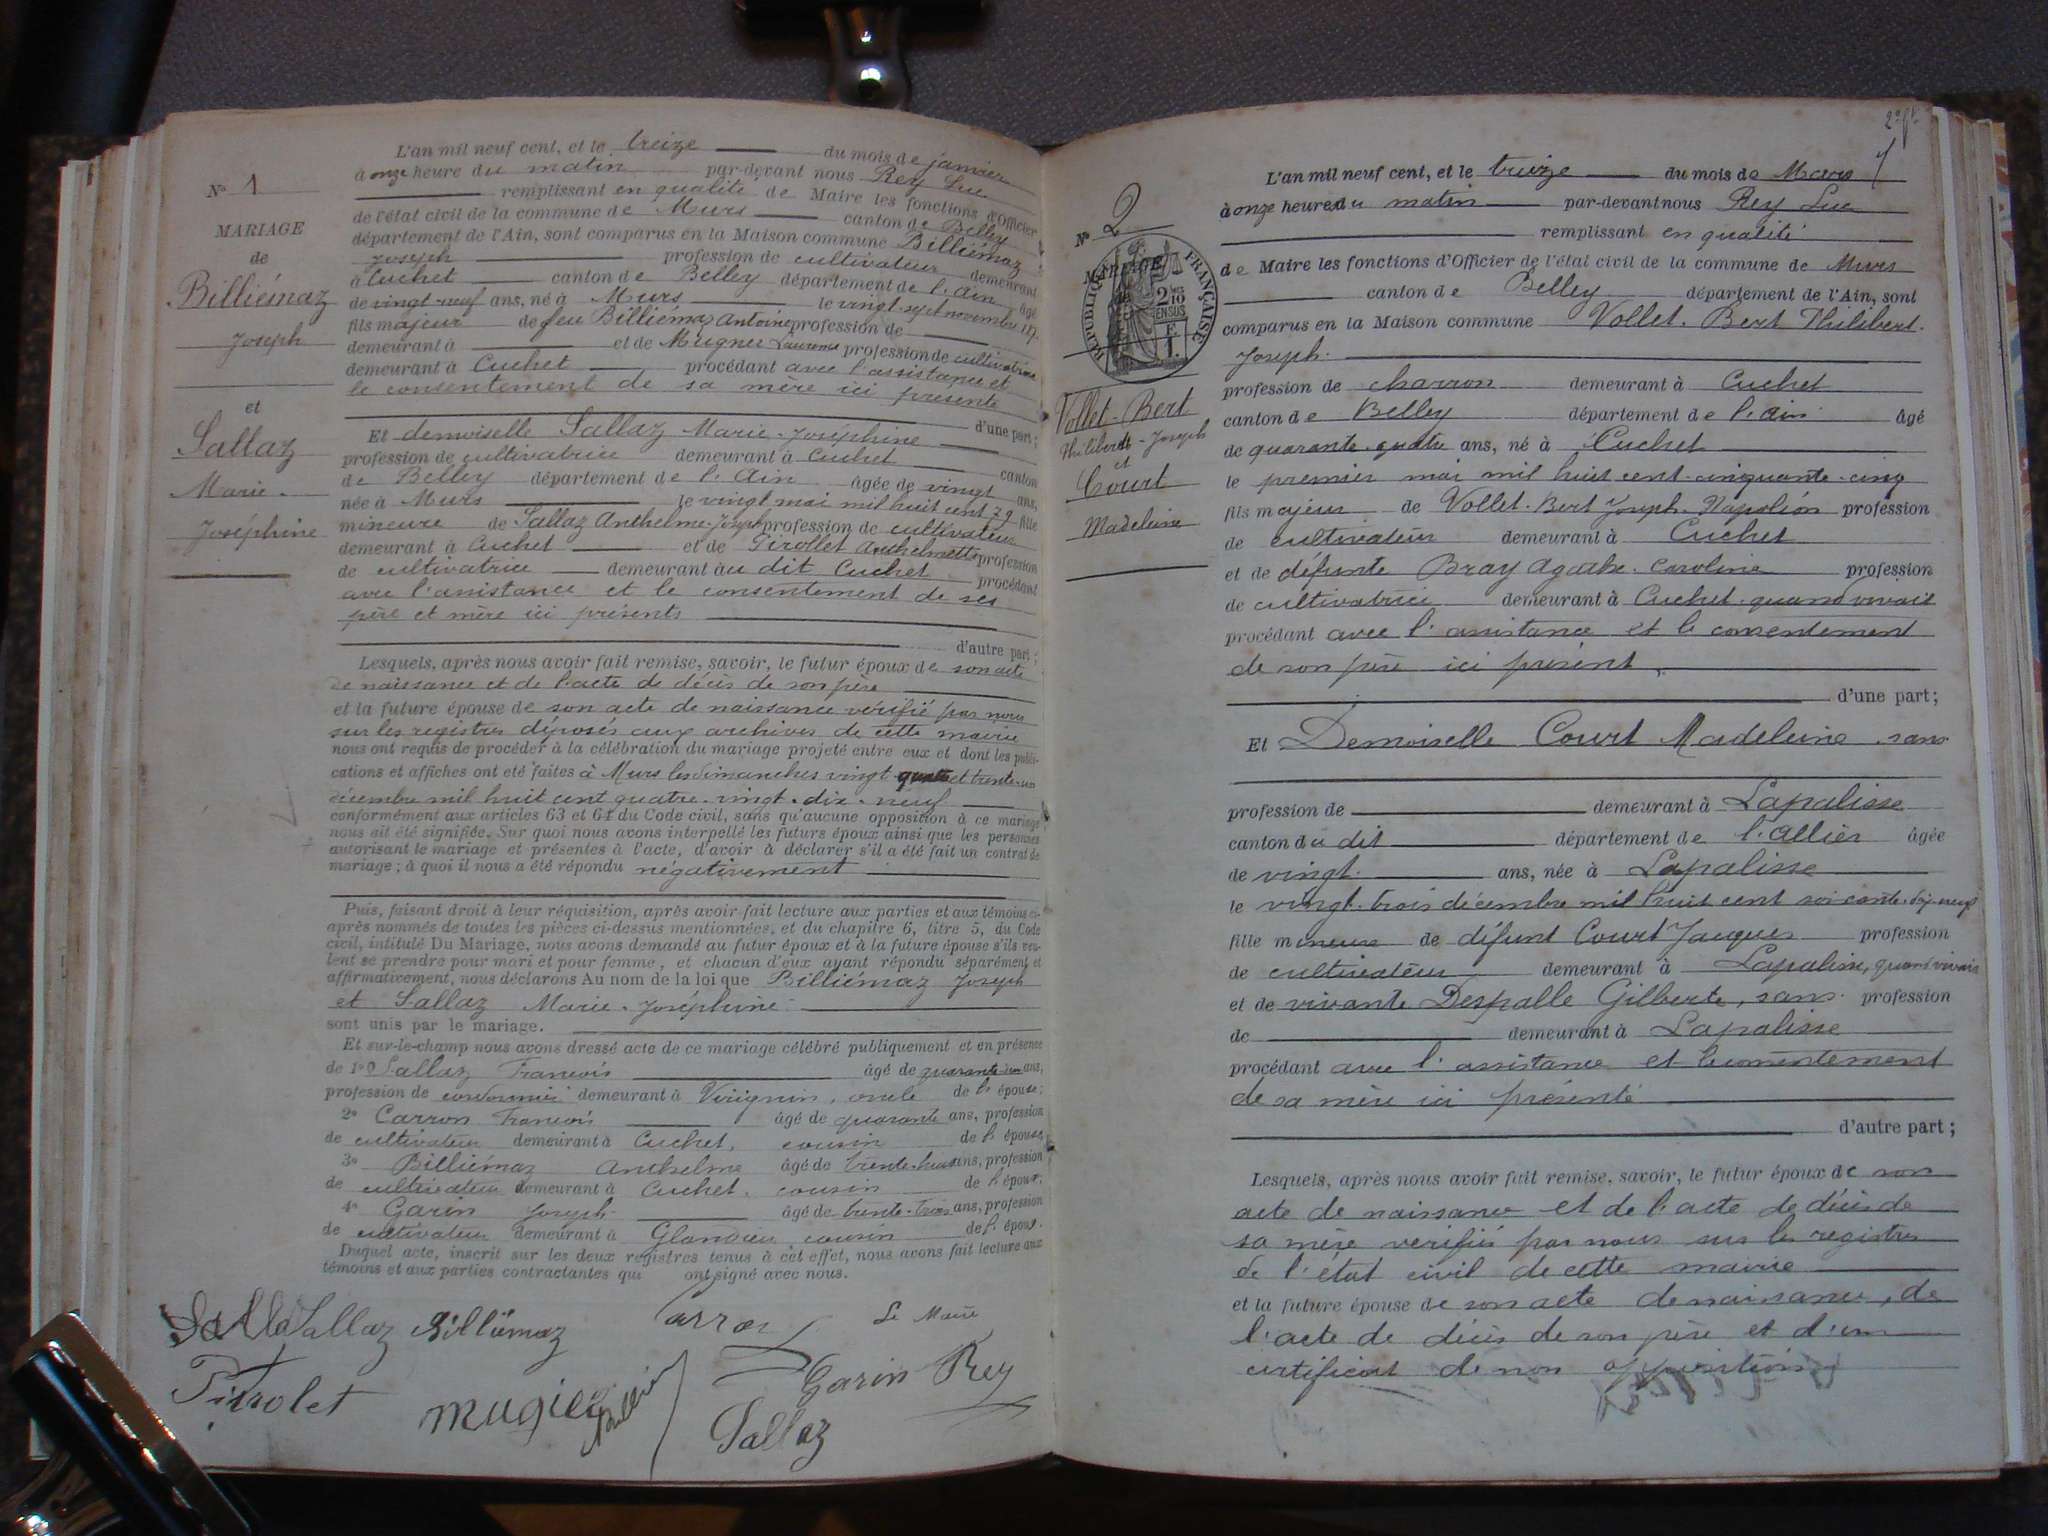 N° 1
MARIAGE
de
Billiémaz
Joseph
et
Sallaz
Marie-
Joséphine
L'an mil neuf cent, et le treize du mois de janvier
à onze heure du matin par-devant nous Rey Luc
remplissant en qualité de Maire les fonctions d'Officier
de l'état civil de la commune de Murs canton de Belley
département de l'Ain, sont comparus en la Maison commune Billiémaz
Joseph profession de cultivateur demeurant
à Cuchet canton de Belley département de l'Ain âgé
de vingt-neuf ans, né à Murs le vingt-sept novembre
fils majeur de feu Billiémaz Antoine profession de
demeurant à et de Mugner profession de cultivatrice
demeurant à Cuchet procédant avec l'assistance et
le consentement de sa mère ici présente
d'une part;
Et demoiselle Sallaz Marie-Joséphine
profession de cultivatrice demeurant à Cuchet canton
de Belley département de l'Ain âgée de vingt ans,
née à Murs le vingt mai mil huit cent 79 fille
mineure de Sallaz Anthelme-Joseph profession de cultivateur
demeurant à Cuchet et de Pirollet Anthelmette profession
de cultivatrice demeurant au dit Cuchet procédant
avec l'assistance et le consentement de ses
père et mère ici présents
d'autre part;
Lesquels, après nous avoir fait remise, savoir, le futur époux de son acte
de naissance et de l'acte de décès de son père
et la future épouse de son acte de naissance vérifié par nous
sur les registres déposés aux archives de cette mairie
nous ont requis de procéder à la célébration du mariage projeté entre eux et dont les publi-
cations et affiches ont été faites à Murs les dimanches vingt-quatre et trente-un
décembre mil huit cent quatre-vingt-dix-neuf
conformément aux articles 63 et 64 du Code civil, sans qu'aucune opposition à ce mariage
nous ait été signifiée. Sur quoi nous avons interpellé les futurs époux ainsi que les personnes
autorisant le mariage et présentes à l'acte, d'avoir à déclarer s'il a été fait un contrat de
mariage; à quoi il nous a été répondu négativement
Puis, faisant droit à leur réquisition, après avoir fait lecture aux parties et aux témoins ci-
après nommés de toutes les pièces ci-dessus mentionnées, et du chapitre 6, titre 5, du Code
civil, intitulé Du Mariage, nous avons demandé au futur époux et à la future épouse s'ils veu-
lent se prendre pour mari et pour femme, et chacun d'eux ayant répondu séparément et
affirmativement, nous déclarons Au nom de la loi que Billiémaz Joseph
et Sallaz Marie-Joséphine
sont unis par le mariage.
Et sur-le-champ nous avons dressé acte de ce mariage célébré publiquement et en présence
de 1° Sallaz François âgé de quarante-un ans,
profession de cordonnier demeurant à Virignin, oncle de l'épouse;
2° Carron François âgé de quarante ans, profession
de cultivateur demeurant à Cuchet, cousin de l'épouse
3° Billiémaz Anthelme âgé de trente-huit ans, profession
de cultivateur demeurant à Cuchet, cousin de l'époux;
4° Garin Joseph âgé de trente-trois ans, profession
de cultivateur demeurant à Glandieu cousin de l'époux.
Duquel acte, inscrit sur les deux registres tenus à cet effet, nous avons fait lecture aux
témoins et aux parties contractantes qui ont signé avec nous.
Sallaz Billiémaz Carron Le Maire
Pirrolet Garin Rey
Sallaz
N° 2
MARIAGE
RÉPUBLIQUE FRANÇAISE
Vollet-Bert
Philibert-Joseph
et
Court
Madeleine
L'an mil neuf cent, et le treize du mois de Mars
à onze heures du matin par-devant nous Rey Luc
remplissant en qualité
de Maire les fonctions d'Officier de l'état civil de la commune de Murs
canton de Belley département de l'Ain, sont
comparus en la Maison commune Vollet-Bert Philibert-
Joseph
profession de charron demeurant à Cuchet
canton de Belley département de l'Ain âgé
de quarante-quatre ans, né à Cuchet
le premier mai mil huit cent cinquante-cinq
fils majeur de Vollet-Bert Joseph-Napoléon profession
de cultivateur demeurant à Cuchet
et de défunte Bray Agathe-Caroline profession
de cultivatrice demeurant à Cuchet quand vivait
procédant avec l'assistance et le consentement
de son père ici présent,
d'une part;
Et Demoiselle Court Madeleine sans
profession de demeurant à Lapalisse
canton du dit département de l'Allier âgée
de vingt ans, née à Lapalisse
le vingt-trois décembre mil huit cent soixante-dix-neuf
fille mineure de défunt Court Jacques profession
de cultivateur demeurant à Lapalisse, quand vivait
et de vivante Despalle Gilberte, sans profession
de demeurant à Lapalisse
procédant avec l'assistance et le consentement
de sa mère ici présente
d'autre part;
Lesquels, après nous avoir fait remise, savoir, le futur époux de son
acte de naissance et de l'acte de décès de
sa mère vérifiés par nous sur les registres
de l'état civil de cette mairie
et la future épouse de son acte de naissance, de
l'acte de décès de son père et d'un
certificat de non opposition